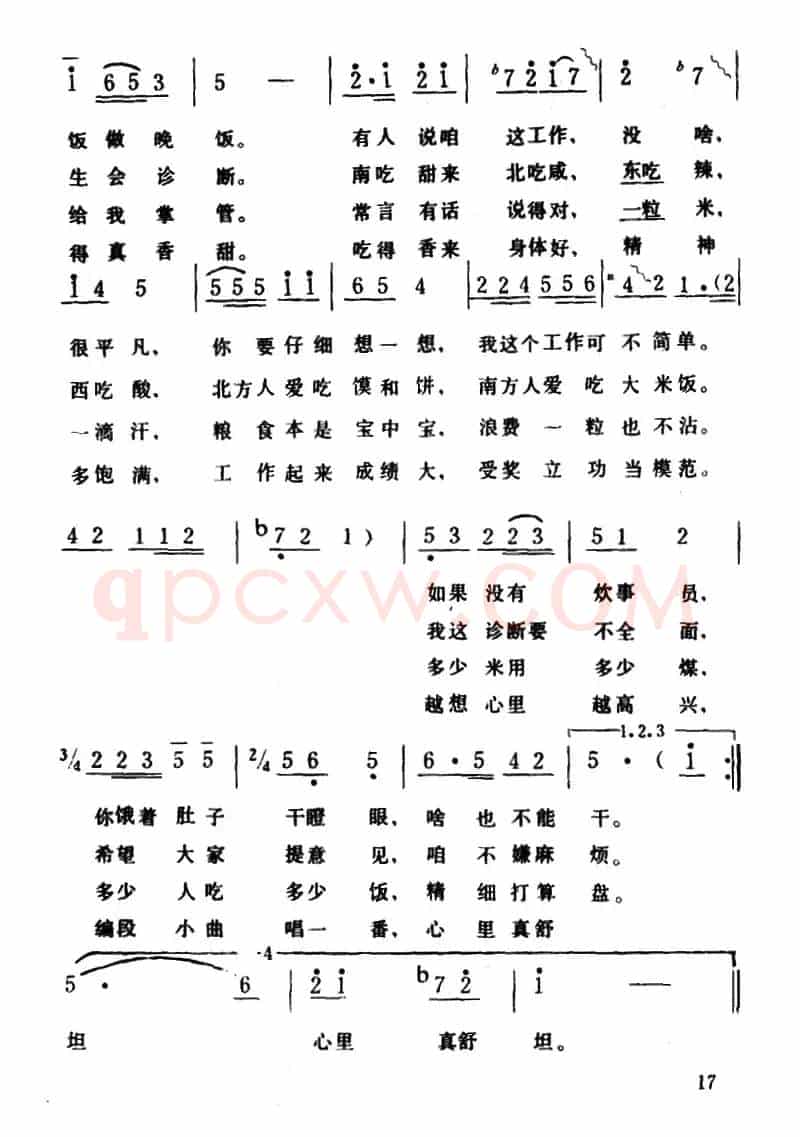 i 6 5 3 | 5 — | 2·i 2 i | b7 2 i 7 | 2 b7 |
饭做晚饭。有人说咱这工作,没啥,
生会诊断。南吃甜来北吃咸,东吃辣,
给我掌管。常言有话说得对,一粒米,
得真香甜。吃得香来身体好,精神
i 4 5 | 5 5 5 i i | 6 5 4 | 2 2 4 5 5 6 | 4 2 1·(2 |
很平凡,你要仔细想一想,我这个工作可不简单。
西吃酸,北方人爱吃馍和饼,南方人爱吃大米饭。
一滴汗,粮食本是宝中宝,浪费一粒也不沾。
多饱满,工作起来成绩大,受奖立功当模范。
4 2 1 1 2 | b7 2 1) | 5 3 2 2 3 | 5 1 2 |
qpcxw.com
如果没有炊事员,
我这诊断要不全面,
多少米用多少煤,
越想心里越高兴,
1.2.3
3/4 2 2 3 5 5 | 2/4 5 6 5 | 6·5 4 2 | 5·( i :|
你饿着肚子干瞪眼,啥也不能干。
希望大家提意见,咱不嫌麻烦。
多少人吃多少饭,精细打算盘。
编段小曲唱一番,心里真舒
4
5· 6 | 2 i b7 2 | i — ||
坦心里真舒坦。
17